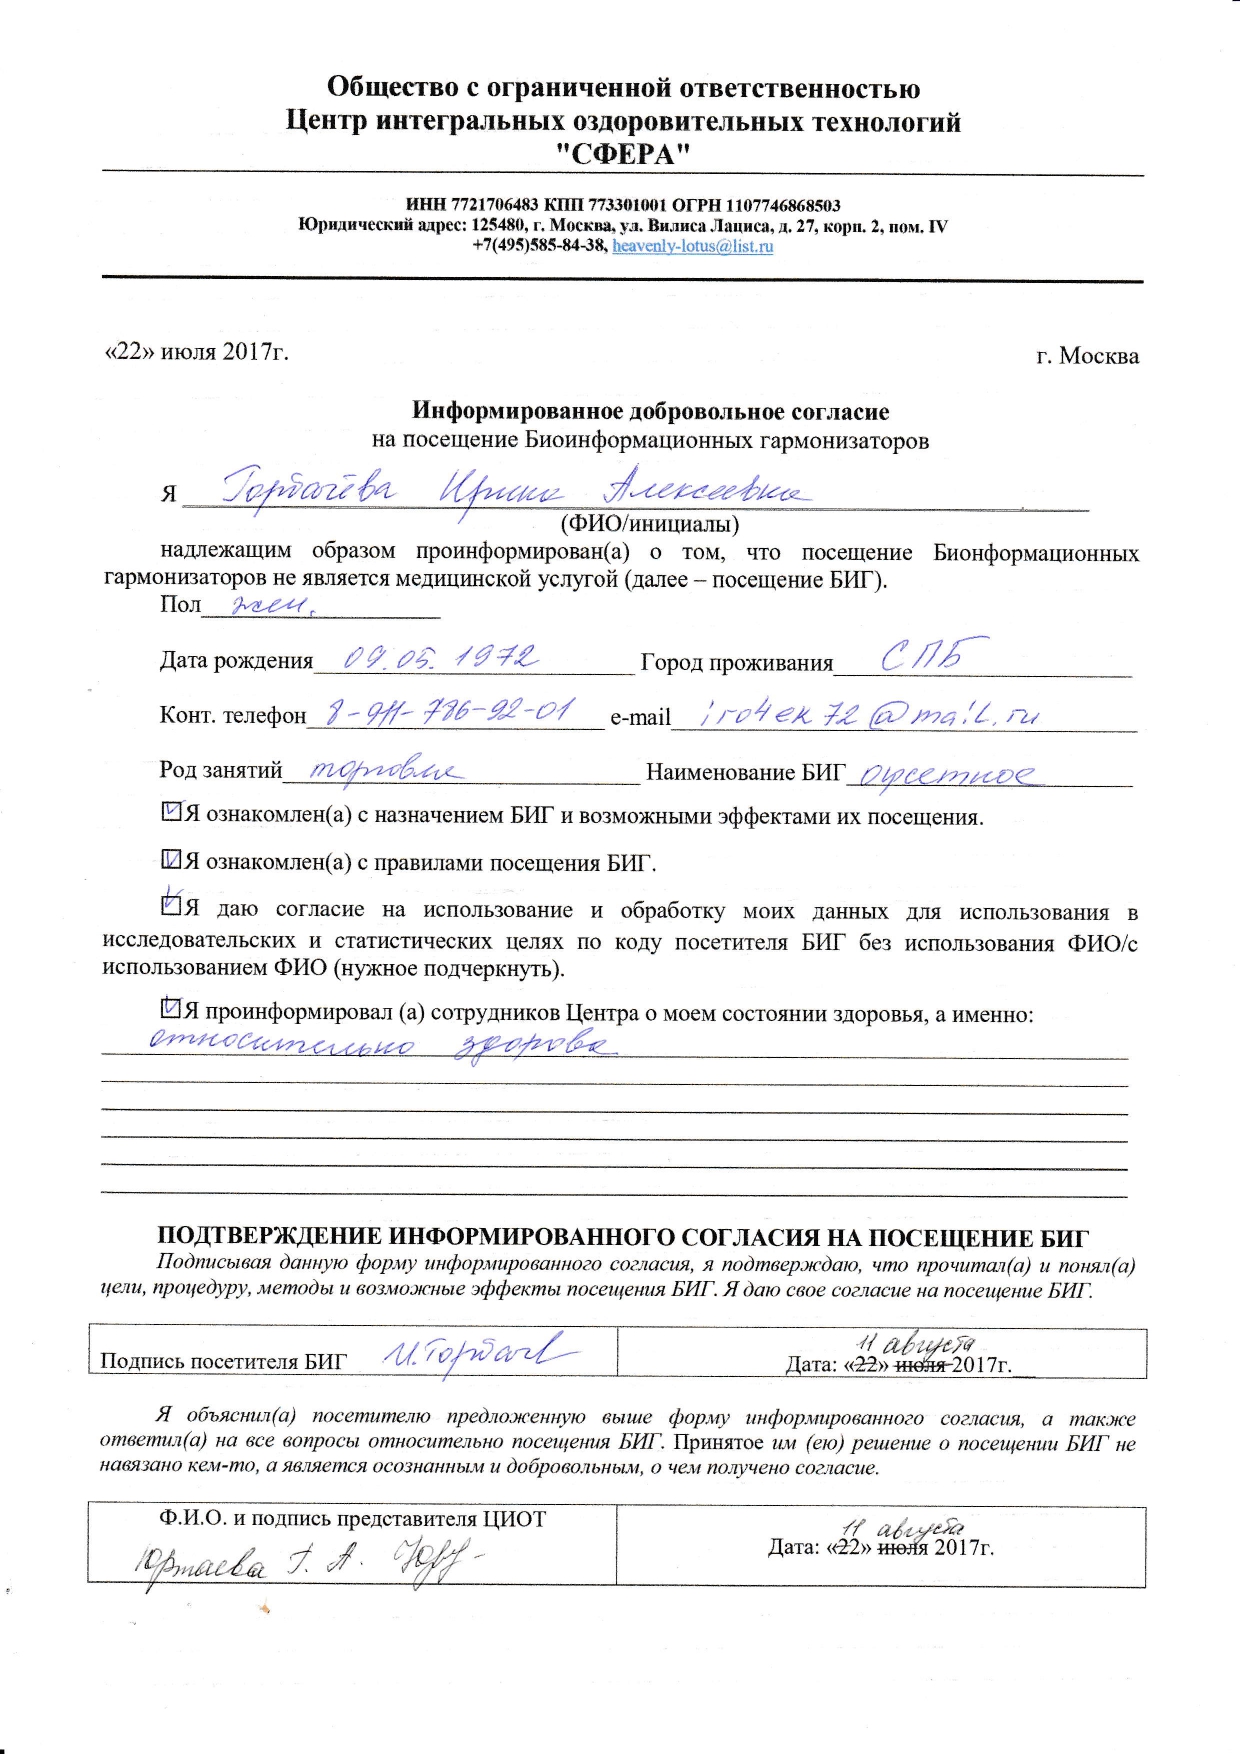 Общество с ограниченной ответственностью
Центр интегральных оздоровительных технологий
"СФЕРА"
ИНН 7721706483 КПП 773301001 ОГРН 1107746868503
Юридический адрес: 125480, г. Москва, ул. Вилиса Лациса, д. 27, корп. 2, пом. IV
+7(495)585-84-38, heavenly-lotus@list.ru
«22» июля 2017г. г. Москва
Информированное добровольное согласие
на посещение Биоинформационных гармонизаторов
Я Горбачёва Ирина Алексеевна
(ФИО/инициалы)
надлежащим образом проинформирован(а) о том, что посещение Бионформационных
гармонизаторов не является медицинской услугой (далее – посещение БИГ).
Пол жен.
Дата рождения 09.05.1972 Город проживания СПБ
Конт. телефон 8-911-786-92-01 e-mail iro4ek72@mail.ru
Род занятий торговля Наименование БИГ офсетное
Я ознакомлен(а) с назначением БИГ и возможными эффектами их посещения.
Я ознакомлен(а) с правилами посещения БИГ.
Я даю согласие на использование и обработку моих данных для использования в
исследовательских и статистических целях по коду посетителя БИГ без использования ФИО/с
использованием ФИО (нужное подчеркнуть).
Я проинформировал (а) сотрудников Центра о моем состоянии здоровья, а именно:
относительно здорова
ПОДТВЕРЖДЕНИЕ ИНФОРМИРОВАННОГО СОГЛАСИЯ НА ПОСЕЩЕНИЕ БИГ
Подписывая данную форму информированного согласия, я подтверждаю, что прочитал(а) и понял(а)
цели, процедуру, методы и возможные эффекты посещения БИГ. Я даю свое согласие на посещение БИГ.
11 августа
Подпись посетителя БИГ И.Горбачёв Дата: «22» июля 2017г.
Я объяснил(а) посетителю предложенную выше форму информированного согласия, а также
ответил(а) на все вопросы относительно посещения БИГ. Принятое им (ею) решение о посещении БИГ не
навязано кем-то, а является осознанным и добровольным, о чем получено согласие.
Ф.И.О. и подпись представителя ЦИОТ
11 августа
Дата: «22» июля 2017г.
Юртаева Г. А.